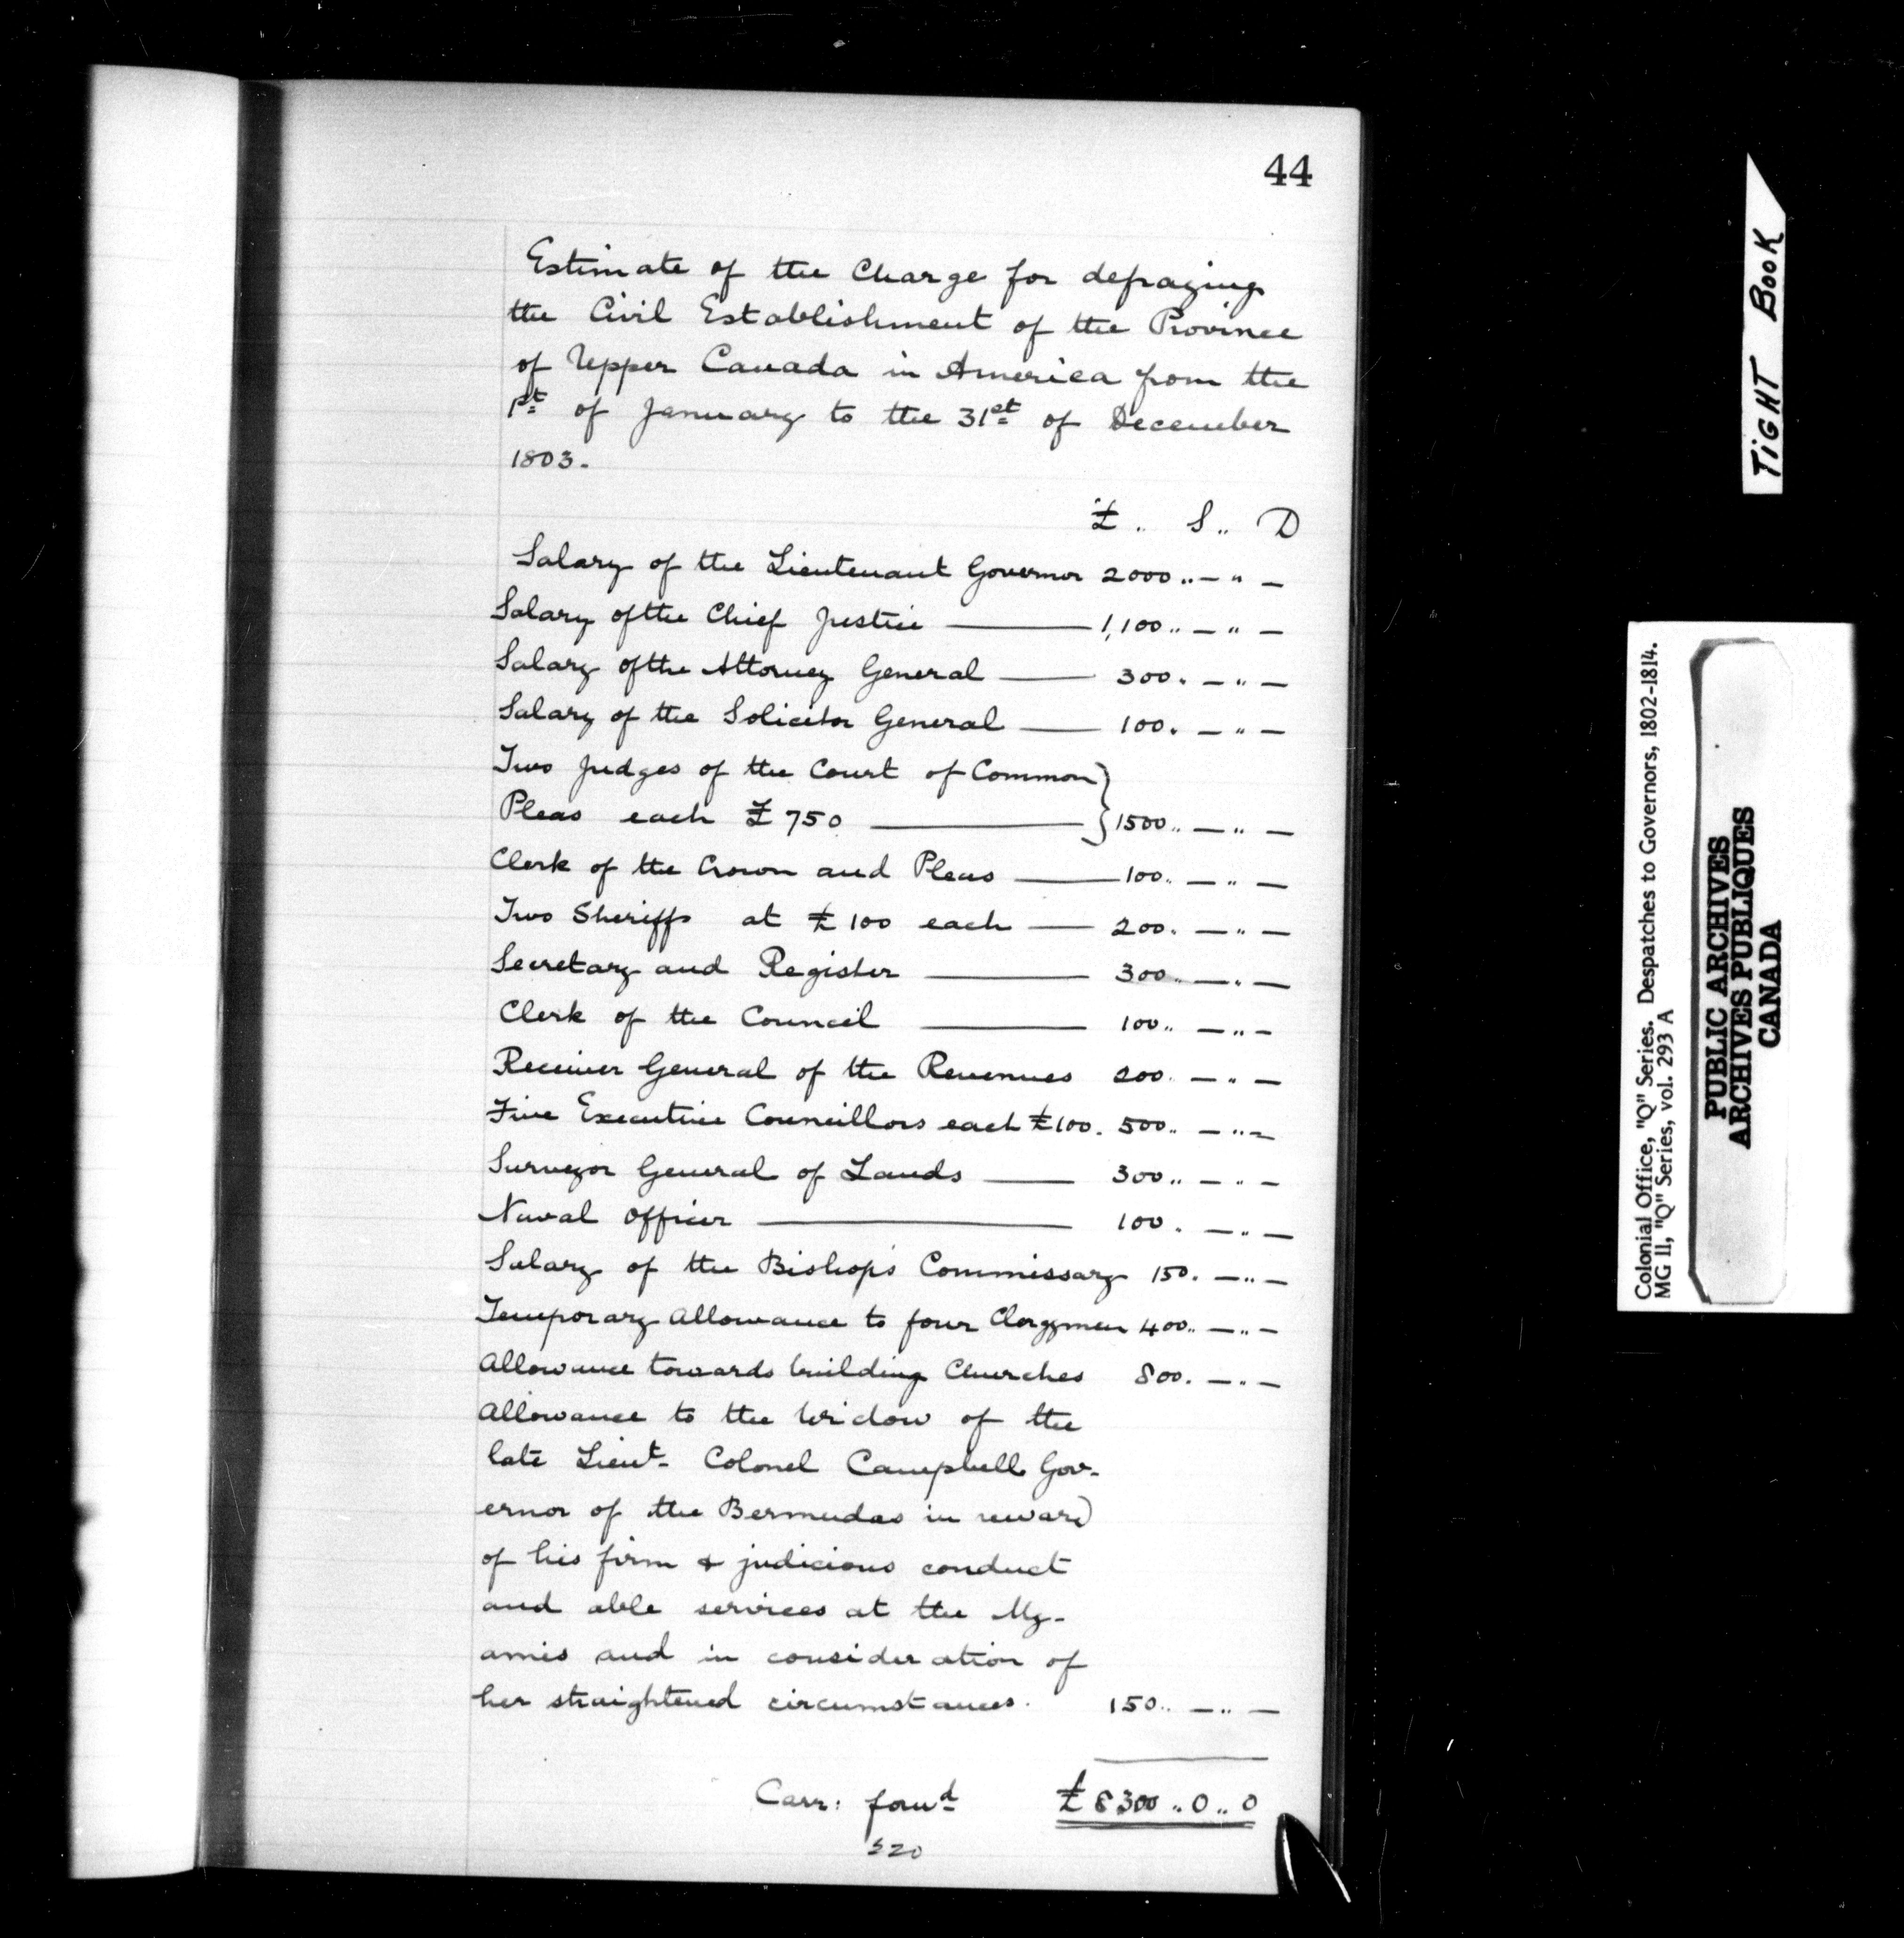 44
Estimate of the Charge for defraying
the Civil Establishment of the Province
of Upper Canada in America from the
1st of January to the 31st of December
1803.
£ .. S .. D
Salary of the Lieutenant Governor 2000 .. — " —
Salary of the Chief Justice — 1,100 .. — " —
Salary of the Attorney General — 300 . — " —
Salary of the Solicitor General — 100 . — " —
Two Judges of the Court of Common }
Pleas each £750 — } 1500 .. — " —
Clerk of the Crown and Pleas — 100 .. — " —
Two Sheriffs at £100 each — 200 . — " —
Secretary and Register — 300 .. — " —
Clerk of the Council — 100 .. — " —
Receiver General of the Revenues 200 . — " —
Five Executive Councillors each £100. 500 .. — " —
Surveyor General of Lands — 300 .. — " —
Naval Officer — 100 . — " —
Salary of the Bishop's Commissary 150 . — " —
Temporary Allowance to four Clergymen 400 .. — " —
Allowance towards building Churches 800 . — " —
Allowance to the Widow of the
late Lieut- Colonel Campbell Gov-
ernor of the Bermudas in reward
of his firm & judicious conduct
and able services at the My-
amis and in consideration of
her straightened circumstances. 150 .. — " —
Carr: forwd £8300 .. 0 .. 0
TiGHT BOOK
Colonial Office, "Q" Series. Despatches to Governors, 1802-1814.
MG 11, "Q" Series, vol. 293 A
PUBLIC ARCHIVES
ARCHIVES PUBLIQUES
CANADA